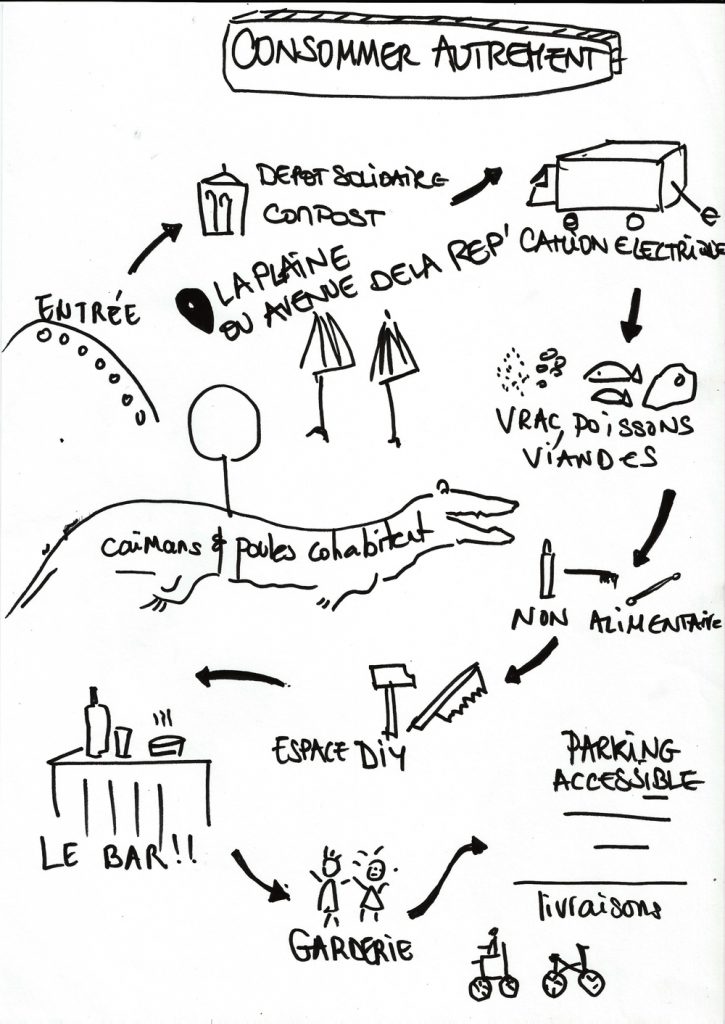 CONSOMMER AUTREMENT
DEPOT SOLIDAIRE
COMPOST
LA PLAINE
OU AVENUE DE LA REP'
CAMION ELECTRIQUE
ENTRÉE
VRAC, POISSONS
VIANDES
caïmans & poules cohabitent
NON ALIMENTAIRE
ESPACE DIY
PARKING
ACCESSIBLE
LE BAR!!
livraisons
GARDERIE